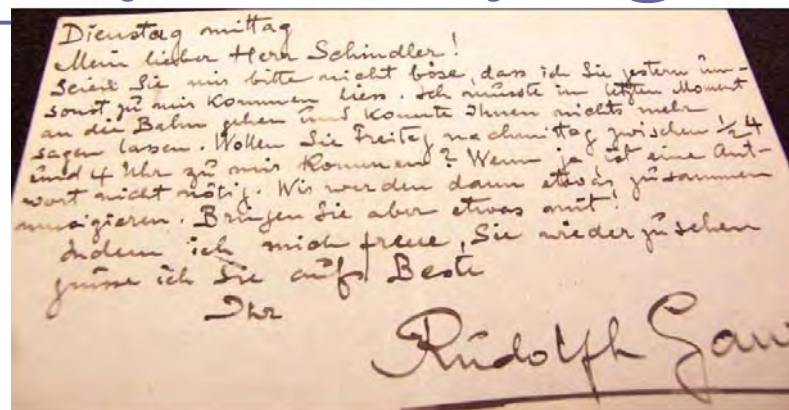 Dienstag mittag
Mein lieber Herr Schindler!
Seien Sie mir bitte nicht böse, dass ich Sie gestern um-
sonst zu mir kommen liess. Ich musste im letzten Moment
an die Bahn gehen und konnte Ihnen nichts mehr
sagen lassen. Wollen Sie Freitag nachmittag zwischen ½4
und 4 Uhr zu mir kommen? Wenn ja, ist eine Ant-
wort nicht nötig. Wir werden dann etwas zusammen
musizieren. Bringen Sie aber etwas mit!
Indem ich mich freue, Sie wiederzusehen
grüsse ich Sie aufs Beste
Ihr
Rudolph